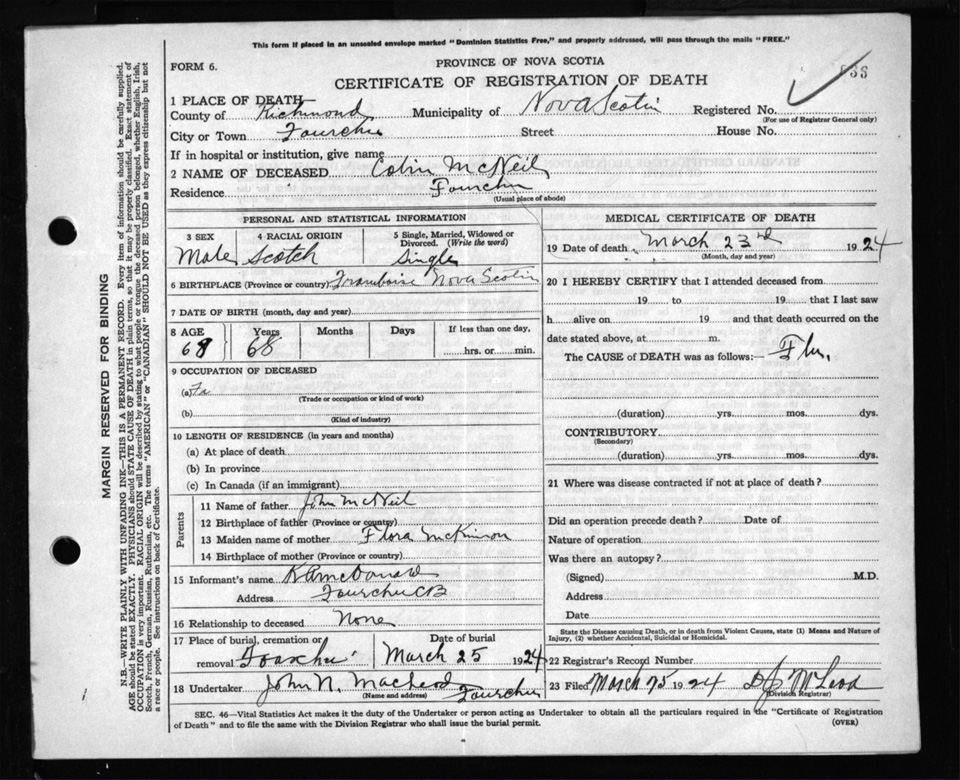 This form if placed in an unsealed envelope marked "Dominion Statistics Free," and properly addressed, will pass through the mails "FREE."
FORM 6.
PROVINCE OF NOVA SCOTIA
CERTIFICATE OF REGISTRATION OF DEATH
1 PLACE OF DEATH
County of Richmond Municipality of Nova Scotia Registered No.
(For use of Registrar General only)
City or Town Fourchu Street House No.
If in hospital or institution, give name
2 NAME OF DECEASED Colin McNeil
Residence Fourchu
(Usual place of abode)
PERSONAL AND STATISTICAL INFORMATION
3 SEX 4 RACIAL ORIGIN 5 Single, Married, Widowed or Divorced. (Write the word)
Male Scotch Single
6 BIRTHPLACE (Province or country) Framboise Nova Scotia
7 DATE OF BIRTH (month, day and year)
8 AGE Years Months Days If less than one day,
68 68 hrs. or min.
9 OCCUPATION OF DECEASED
(a) Fa
(Trade or occupation or kind of work)
(b)
(Kind of industry)
10 LENGTH OF RESIDENCE (in years and months)
(a) At place of death
(b) In province
(c) In Canada (if an immigrant)
Parents
11 Name of father John McNeil
12 Birthplace of father (Province or country)
13 Maiden name of mother Flora McKinnon
14 Birthplace of mother (Province or country)
15 Informant's name McDonald
Address Fourchu CB
16 Relationship to deceased None
17 Place of burial, cremation or Date of burial
removal Fourchu March 25 1924
18 Undertaker John N. MacLeod Fourchu
(Name and address)
MEDICAL CERTIFICATE OF DEATH
19 Date of death March 23rd 1924
(Month, day and year)
20 I HEREBY CERTIFY that I attended deceased from
19 to 19 that I last saw
h alive on 19 and that death occurred on the
date stated above, at m.
The CAUSE of DEATH was as follows:— Flu.
(duration) yrs. mos. dys.
CONTRIBUTORY
(Secondary)
(duration) yrs. mos. dys.
21 Where was disease contracted if not at place of death?
Did an operation precede death? Date of
Nature of operation
Was there an autopsy?
(Signed) M.D.
Address
Date
State the Disease causing Death, or in death from Violent Causes, state (1) Means and Nature of
Injury, (2) whether Accidental, Suicidal or Homicidal.
22 Registrar's Record Number
23 Filed March 25 1924 McLeod
(Division Registrar)
SEC. 46—Vital Statistics Act makes it the duty of the Undertaker or person acting as Undertaker to obtain all the particulars required in the "Certificate of Registration
of Death" and to file the same with the Division Registrar who shall issue the burial permit. (OVER)
MARGIN RESERVED FOR BINDING
N.B.—WRITE PLAINLY WITH UNFADING INK—THIS IS A PERMANENT RECORD. Every item of information should be carefully supplied.
AGE should be stated EXACTLY. PHYSICIANS should STATE CAUSE OF DEATH in plain terms, so that it may be properly classified. Exact statement of
OCCUPATION is very important. RACIAL ORIGIN will be described by stating to what people or tongue the deceased person belonged, whether English, Irish,
Scotch, French, German, Russian, Ruthenian, etc. The terms "AMERICAN" or "CANADIAN" SHOULD NOT BE USED as they express citizenship but not
a race or people. See instructions on back of Certificate.